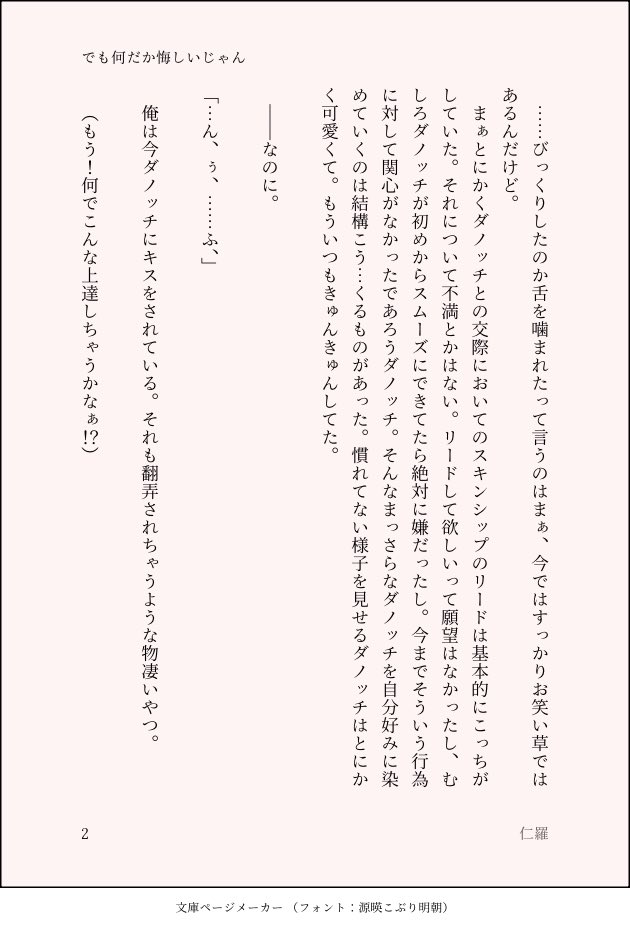 でも何だか悔しいじゃん
……びっくりしたのか舌を噛まれたって言うのはまぁ、今ではすっかりお笑い草では
あるんだけど。
まぁとにかくダノッチとの交際においてのスキンシップのリードは基本的にこっちが
していた。それについて不満とかはない。リードして欲しいって願望はなかったし、む
しろダノッチが初めからスムーズにできてたら絶対に嫌だったし。今までそういう行為
に対して関心がなかったであろうダノッチ。そんなまっさらなダノッチを自分好みに染
めていくのは結構こう…くるものがあった。慣れてない様子を見せるダノッチはとにか
く可愛くて。もういつもきゅんきゅんしてた。
――なのに。
「…ん、ぅ、……ふ、」
俺は今ダノッチにキスをされている。それも翻弄されちゃうような物凄いやつ。
（もう！何でこんな上達しちゃうかなぁ!?）
2
仁羅
文庫ページメーカー （フォント：源暎こぶり明朝）